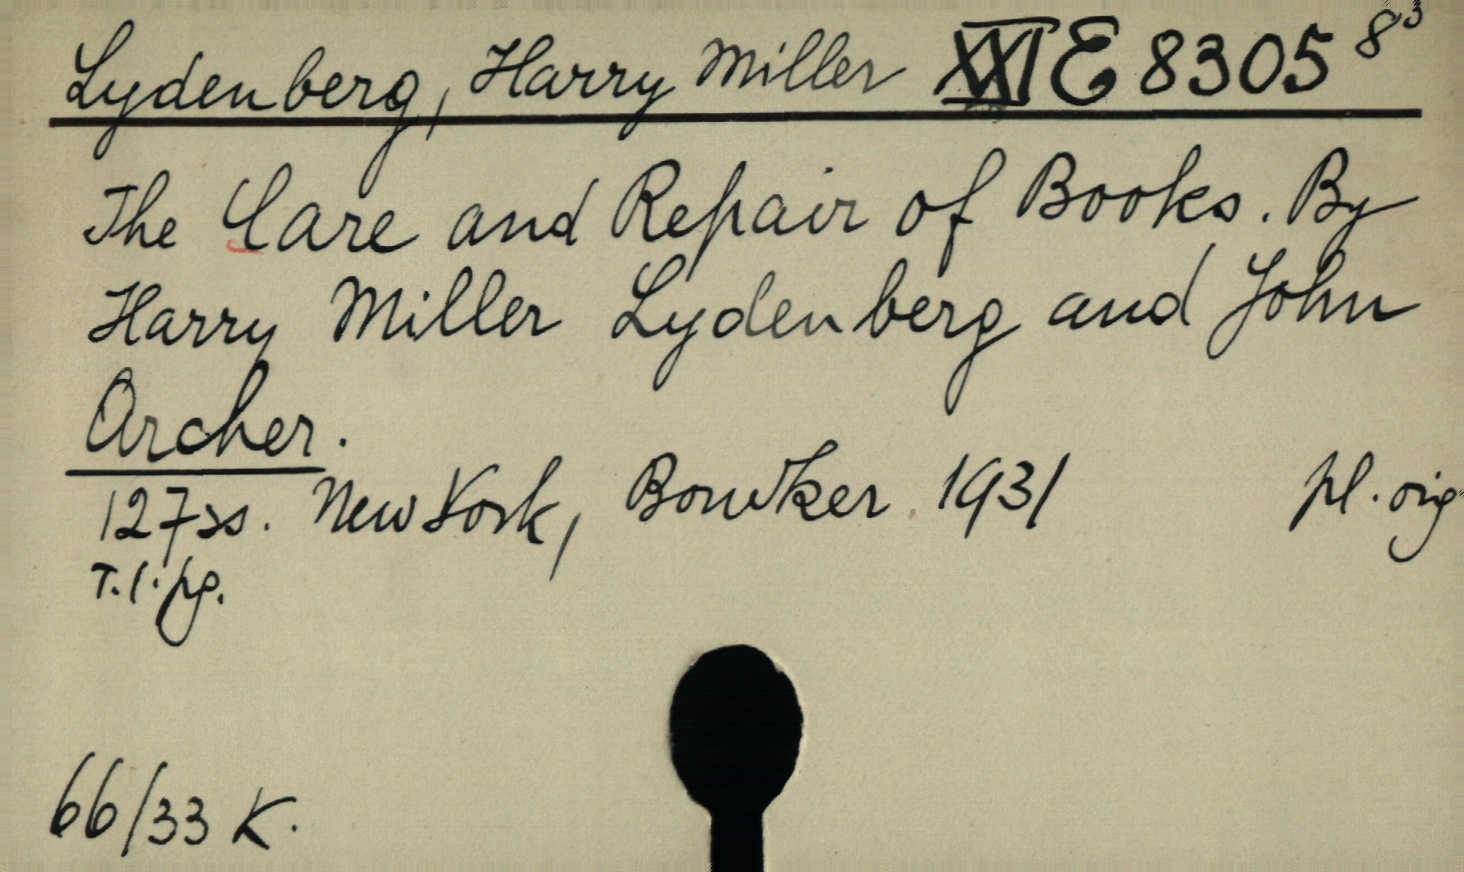 Lydenberg, Harry Miller XXI E 8305 8³
The Care and Repair of Books. By
Harry Miller Lydenberg and John
Archer.
127 ss. New York, Bowker 1931 pl. orig
T. l. pg.
66/33 K.